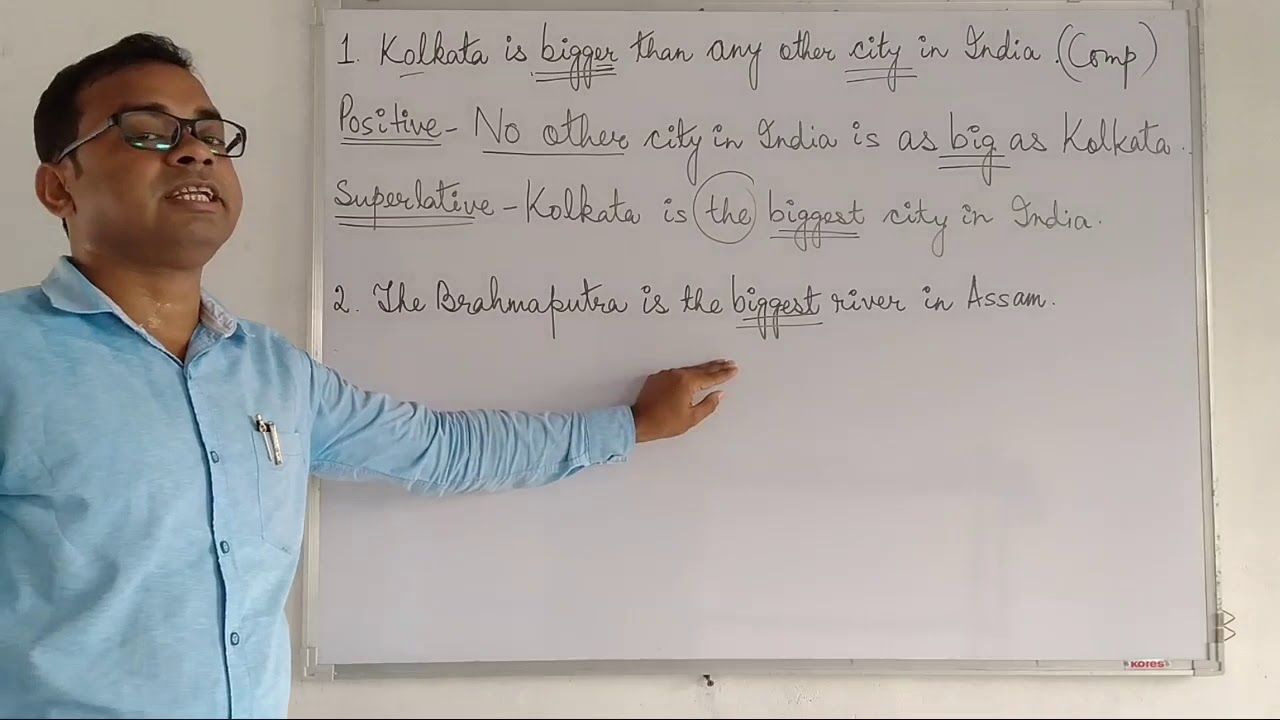 1. Kolkata is bigger than any other city in India. (Comp)
Positive - No other city in India is as big as Kolkata.
Superlative - Kolkata is the biggest city in India.
2. The Brahmaputra is the biggest river in Assam.
KORES